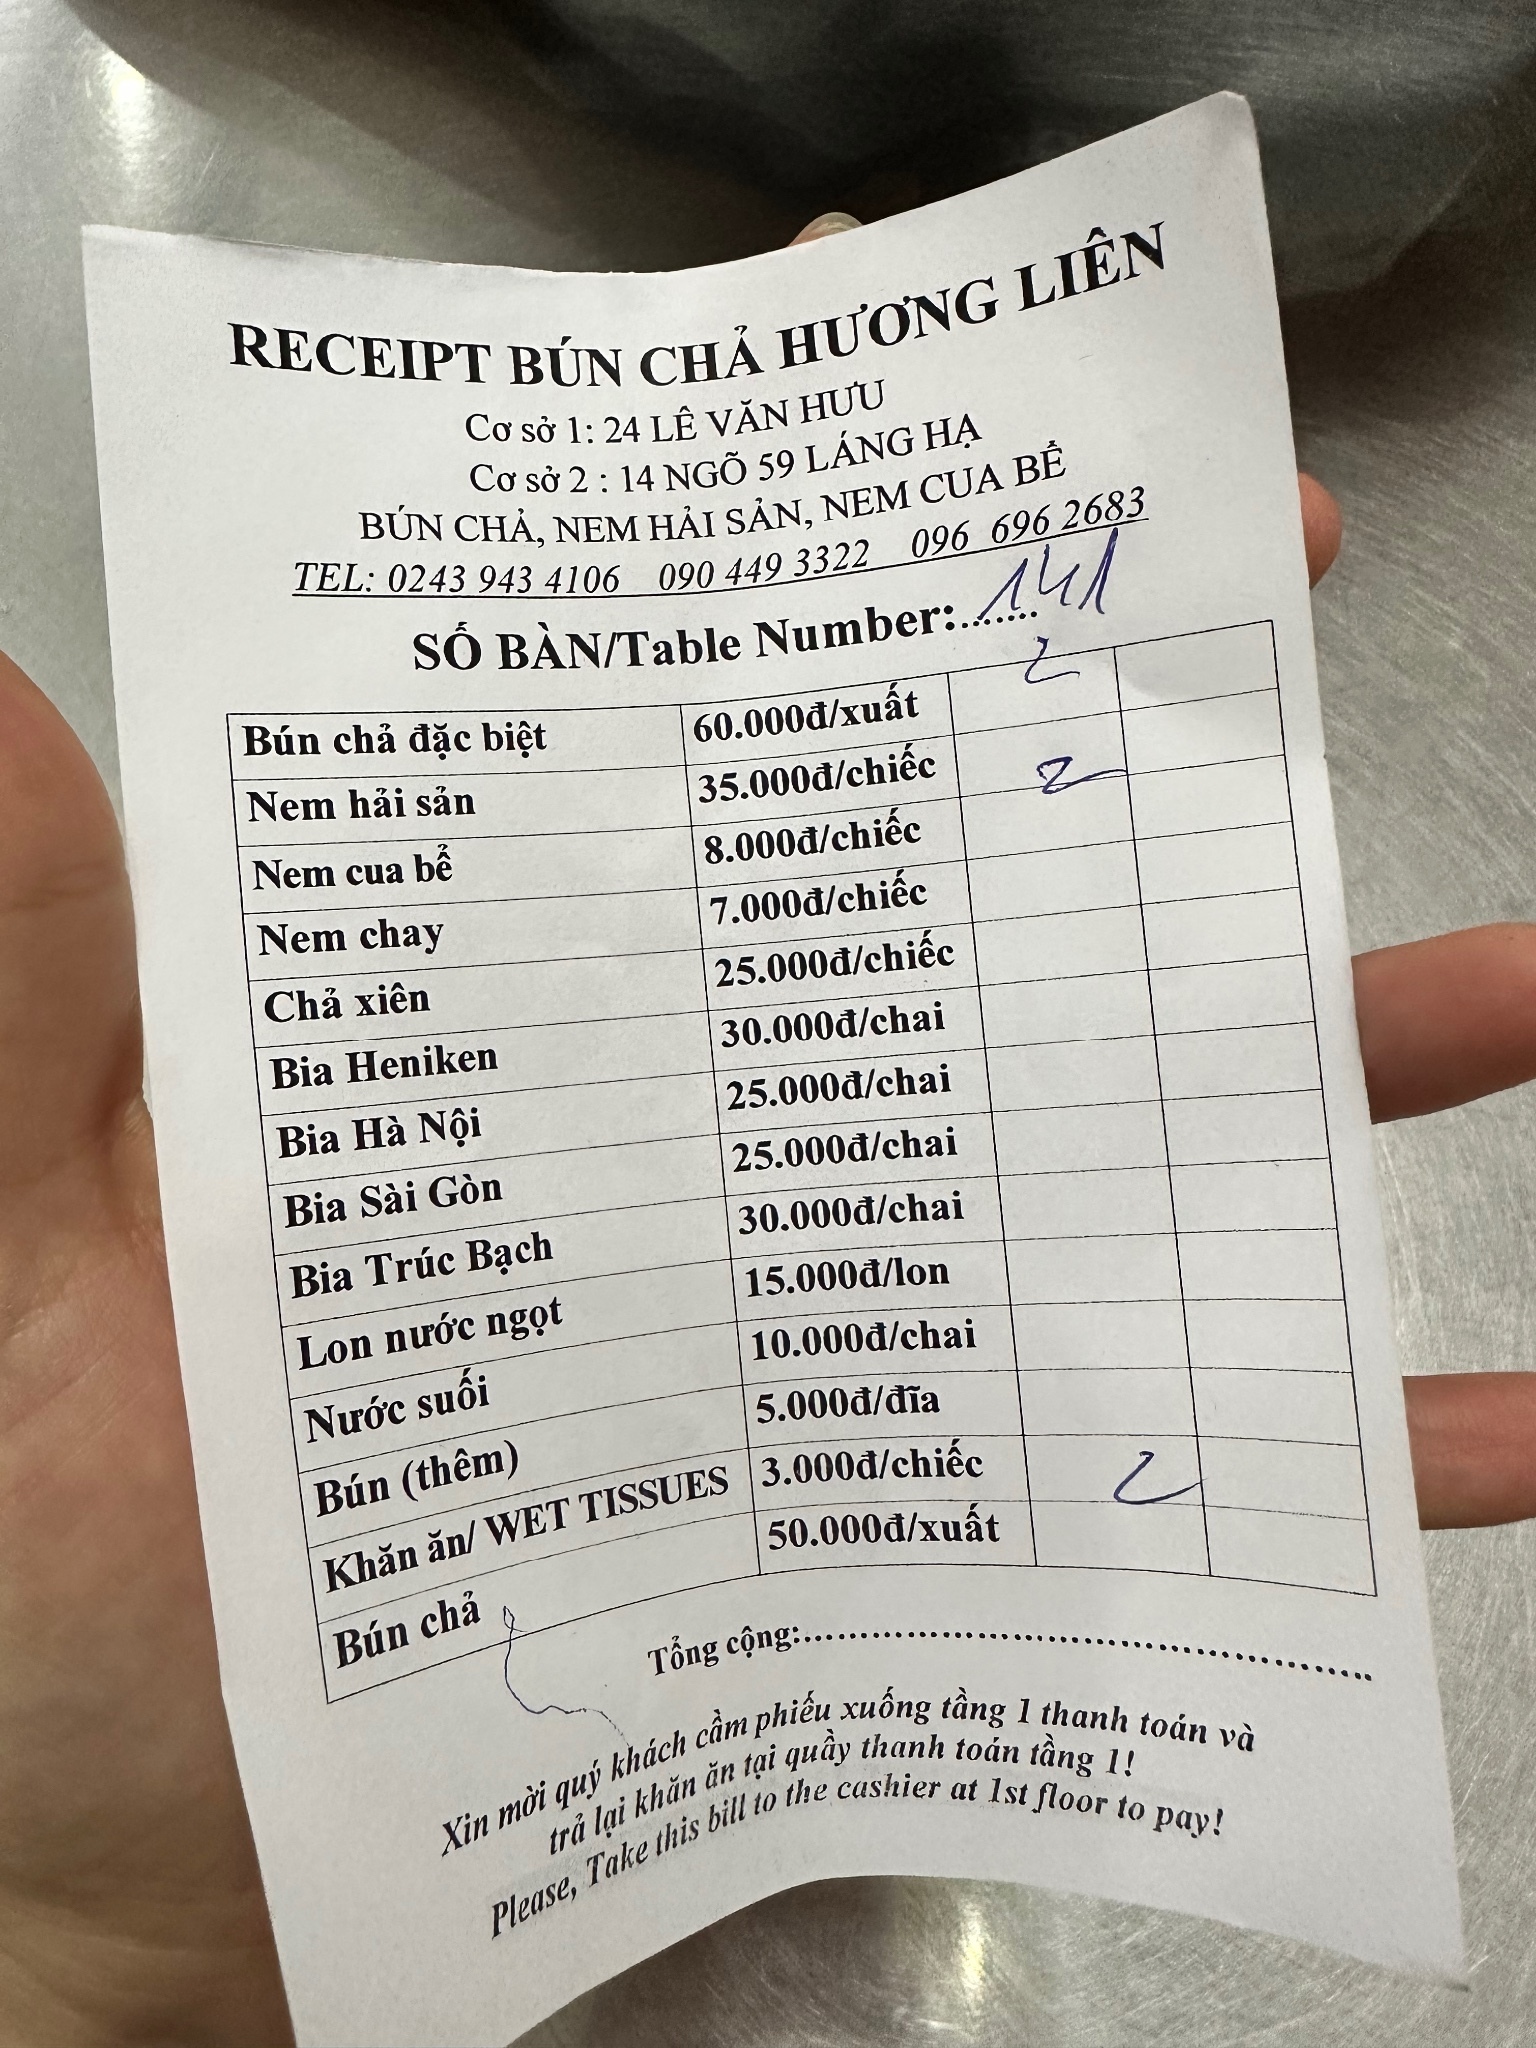 RECEIPT BÚN CHẢ HƯƠNG LIÊN
Cơ sở 1: 24 LÊ VĂN HƯU
Cơ sở 2 : 14 NGÕ 59 LÁNG HẠ
BÚN CHẢ, NEM HẢI SẢN, NEM CUA BỂ
TEL: 0243 943 4106 090 449 3322 096 696 2683
SỐ BÀN/Table Number:....... 141
Bún chả đặc biệt 60.000đ/xuất 2
Nem hải sản 35.000đ/chiếc 2
Nem cua bể 8.000đ/chiếc
Nem chay 7.000đ/chiếc
Chả xiên 25.000đ/chiếc
Bia Heniken 30.000đ/chai
Bia Hà Nội 25.000đ/chai
Bia Sài Gòn 25.000đ/chai
Bia Trúc Bạch 30.000đ/chai
Lon nước ngọt 15.000đ/lon
Nước suối 10.000đ/chai
Bún (thêm) 5.000đ/đĩa
Khăn ăn/ WET TISSUES 3.000đ/chiếc 2
Bún chả 50.000đ/xuất
Tổng cộng:..........................................................
Xin mời quý khách cầm phiếu xuống tầng 1 thanh toán và
trả lại khăn ăn tại quầy thanh toán tầng 1!
Please, Take this bill to the cashier at 1st floor to pay!